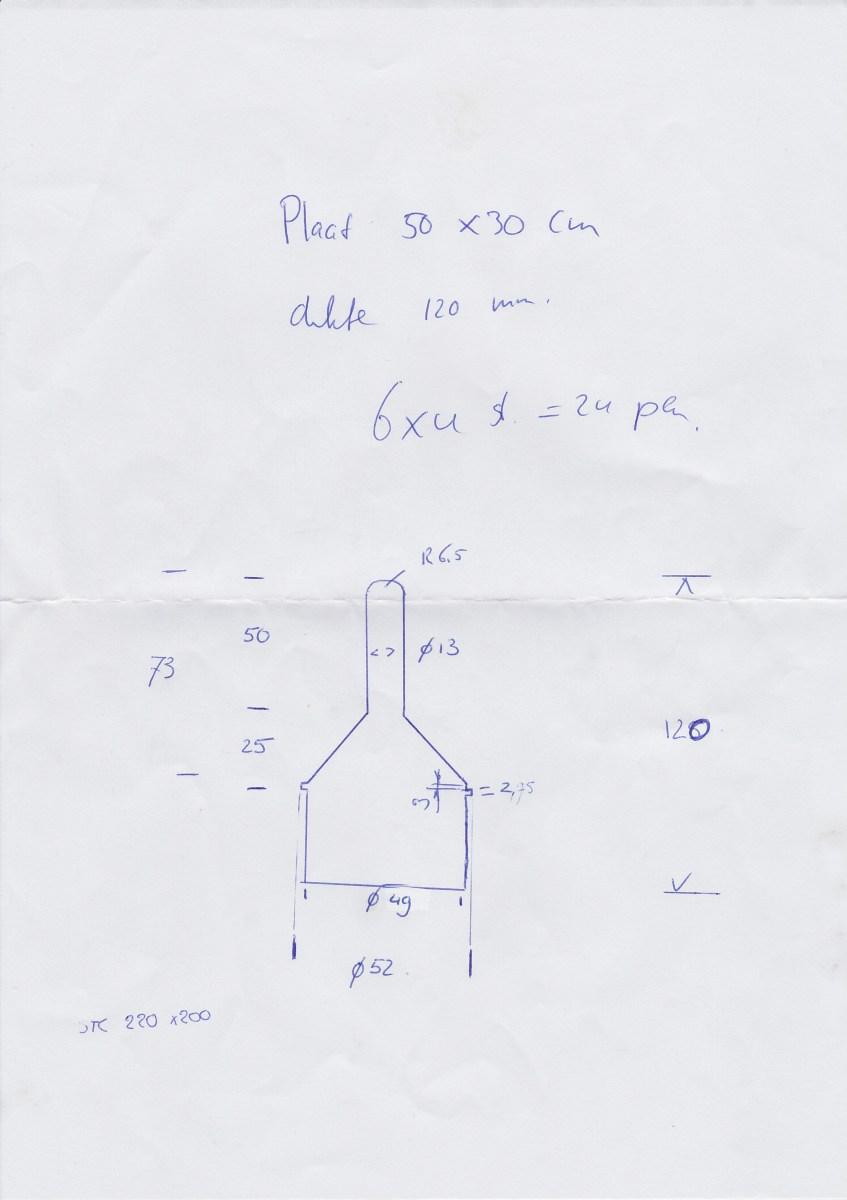 Plaat 50 x 30 cm
dikte 120 mm.
6 x 4 st. = 24 per.
R6.5
50
73
ø13
25
120
3
= 2,75
ø 49
ø52
220 x 200